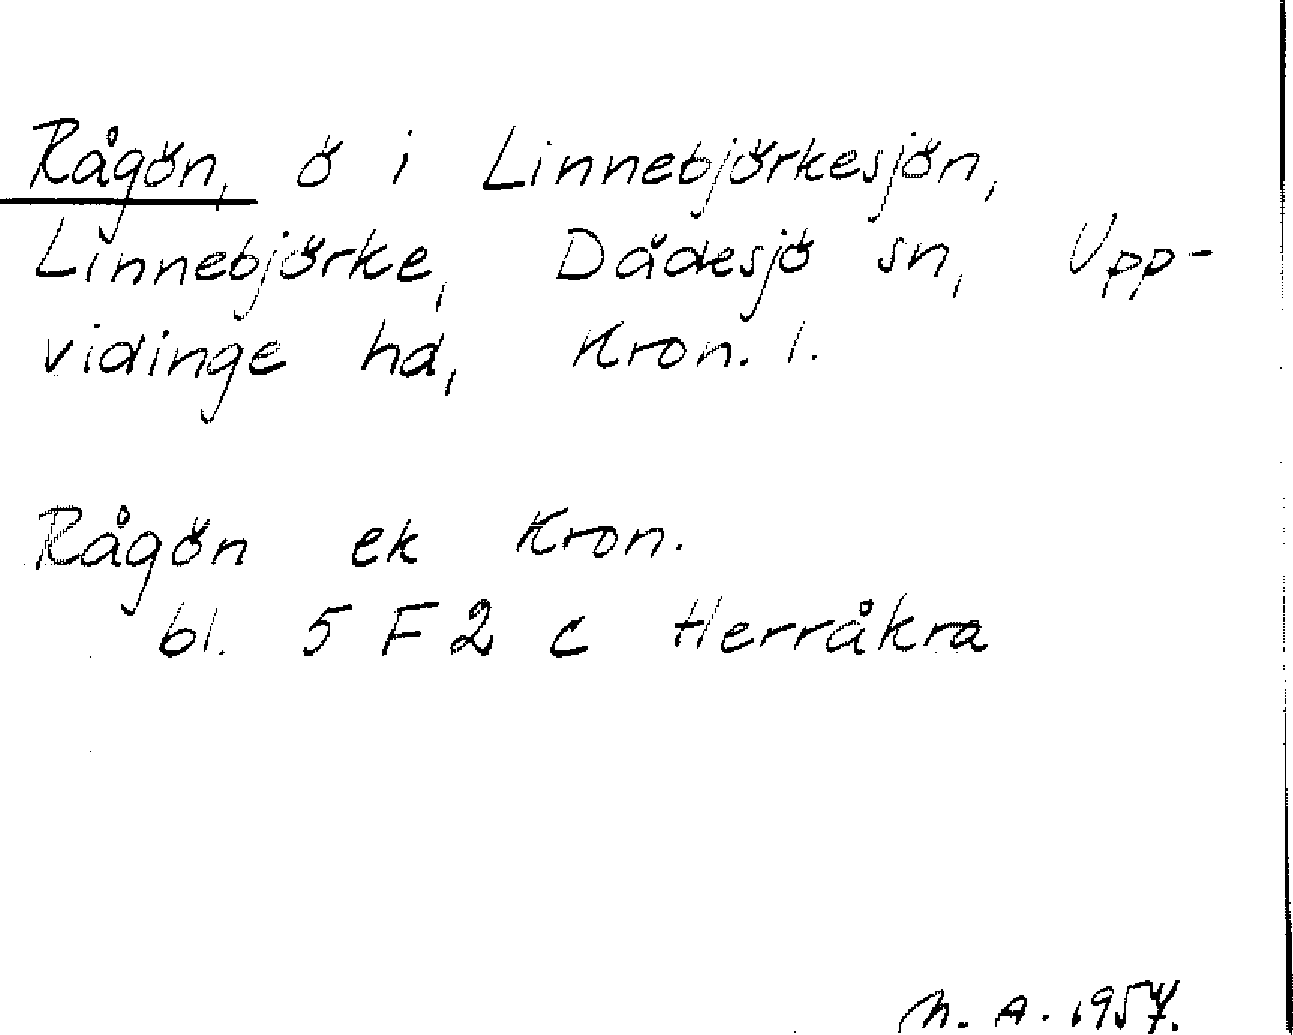 Rågön, ö i Linnebjörkesjön,
Linnebjörke, Dädesjö sn, Upp-
vidinge hd, Kron. l.
Rågön ek Kron.
bl. 5 F 2 c Herråkra
M. A. 1957.